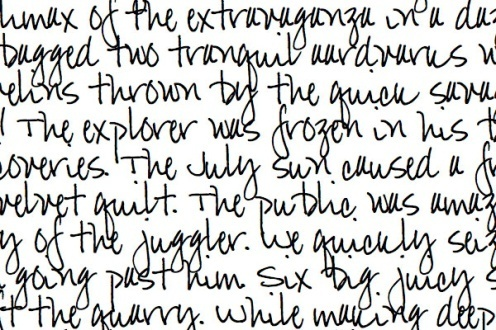 limax of the extravaganza in a daz
bagged two tranquil aardvarks w
velins thrown by the quick sava
! The explorer was frozen in his t
coveries. The July sun caused a fr
velvet quilt. The public was amaz
y of the juggler. We quickly seiz
going past him. Six big juicy s
t the quarry. While making deep